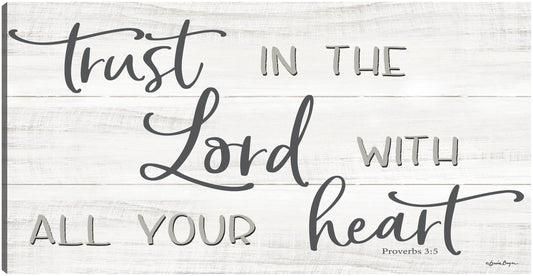 trust IN THE
Lord WITH
ALL YOUR heart
Proverbs 3:5